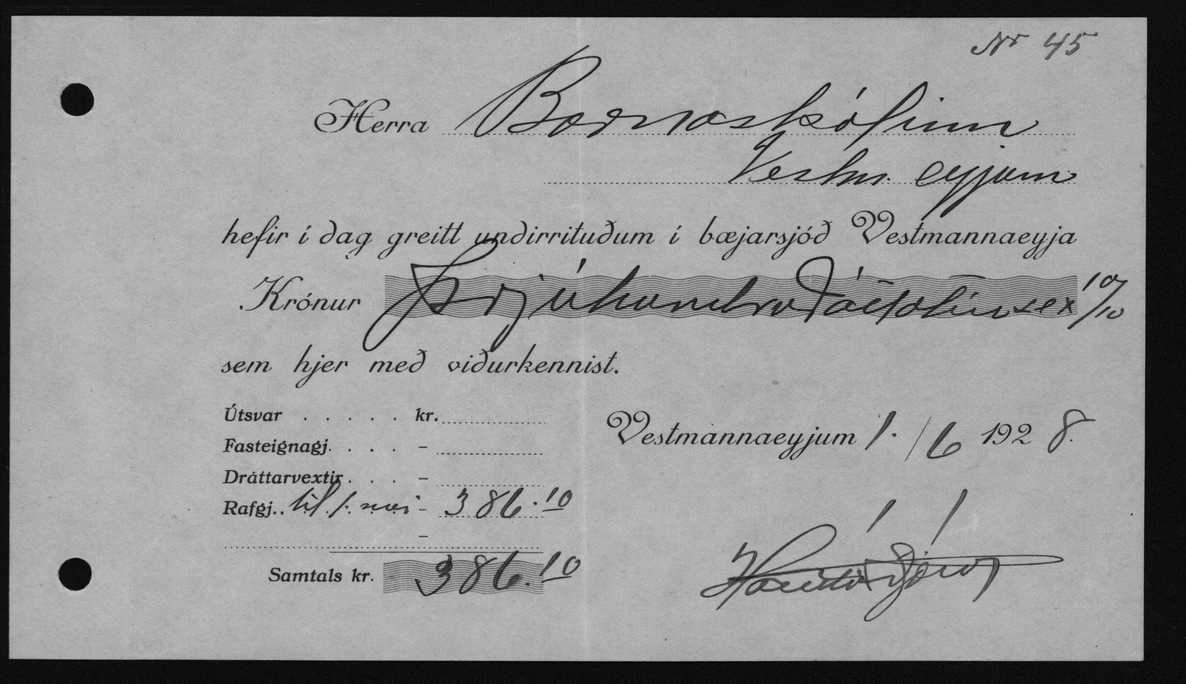 Nr 45
Herra Barnaskólinn
Vestm. eyjum
hefir í dag greitt undirrituðum í bæjarsjóð Vestmannaeyja
Krónur Þrjúhundruðáttatíuogsex 10/10
sem hjer með viðurkennist.
Útsvar . . . . . kr.
Fasteignagj. . . . . –
Dráttarvextir . . . –
Rafgj. . til 1. maí - 386.10
–
Samtals kr. 386.10
Vestmannaeyjum 1. / 6 1928.